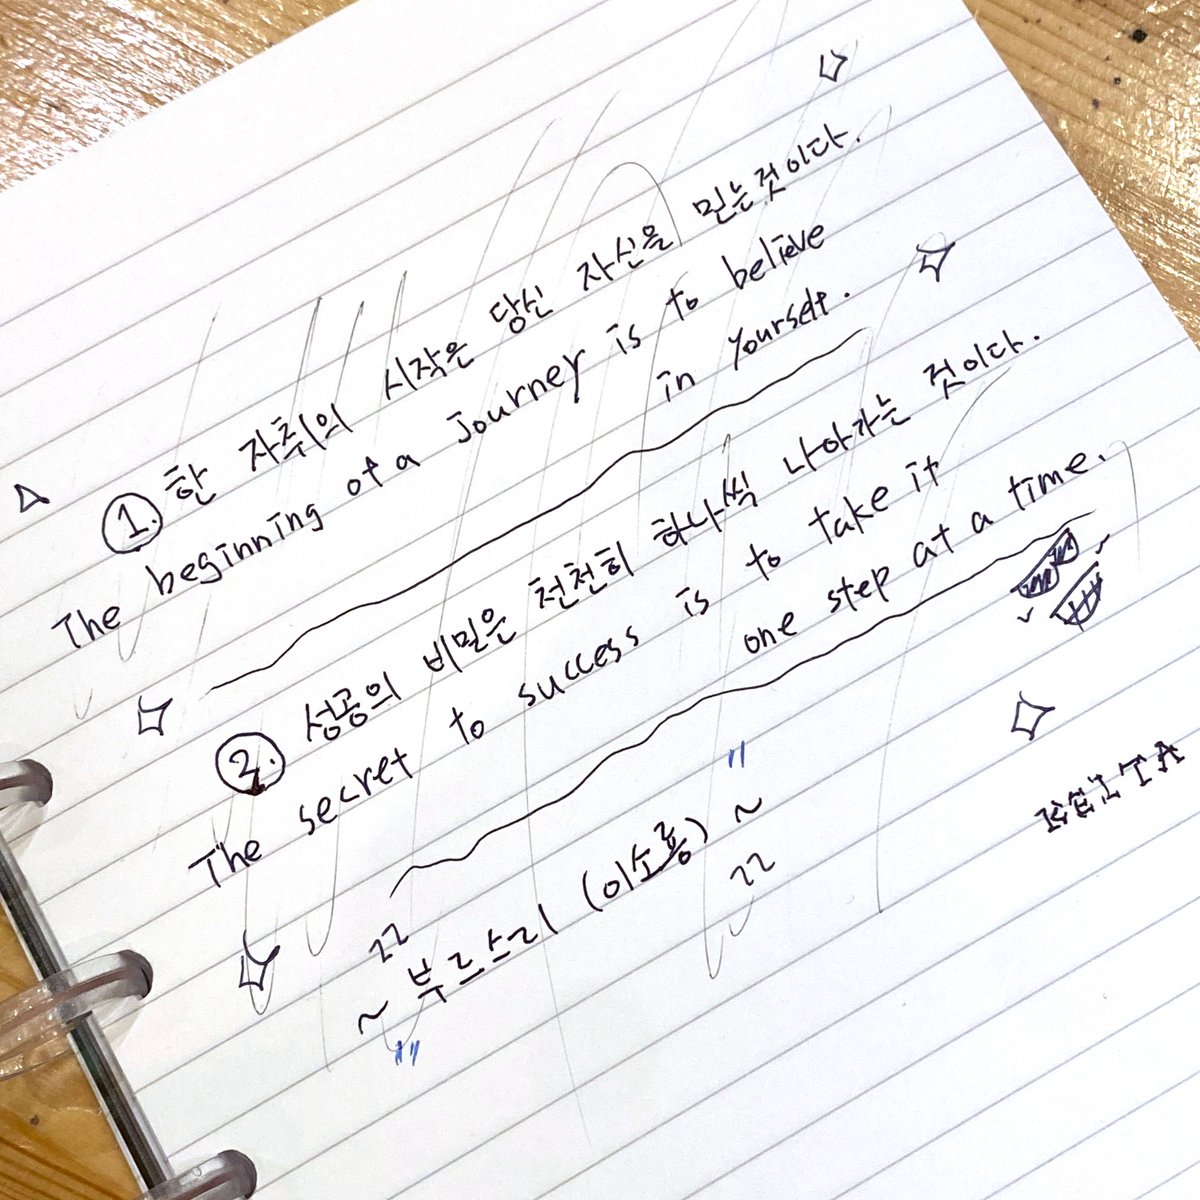 1. 한 자취의 시작은 당신 자신을 믿는것이다.
The beginning of a journey is to believe
in yourself.
2. 성공의 비밀은 천천히 하나씩 나아가는 것이다.
The secret to success is to take it
one step at a time.
~ 부르스리 (이소룡) ~